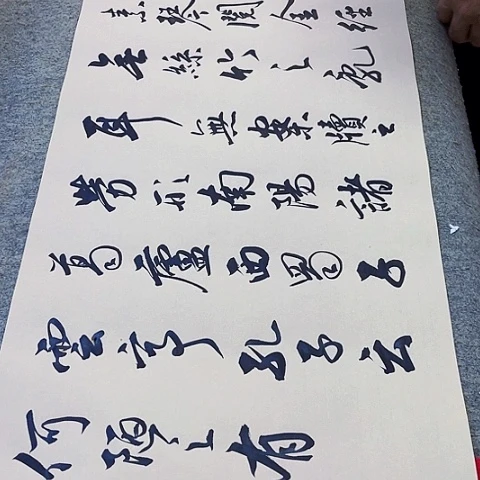 素琴閱金經
無絲竹之亂
耳無案牘之
勞形南陽諸
葛廬西蜀子
雲亭孔子云
何陋之有